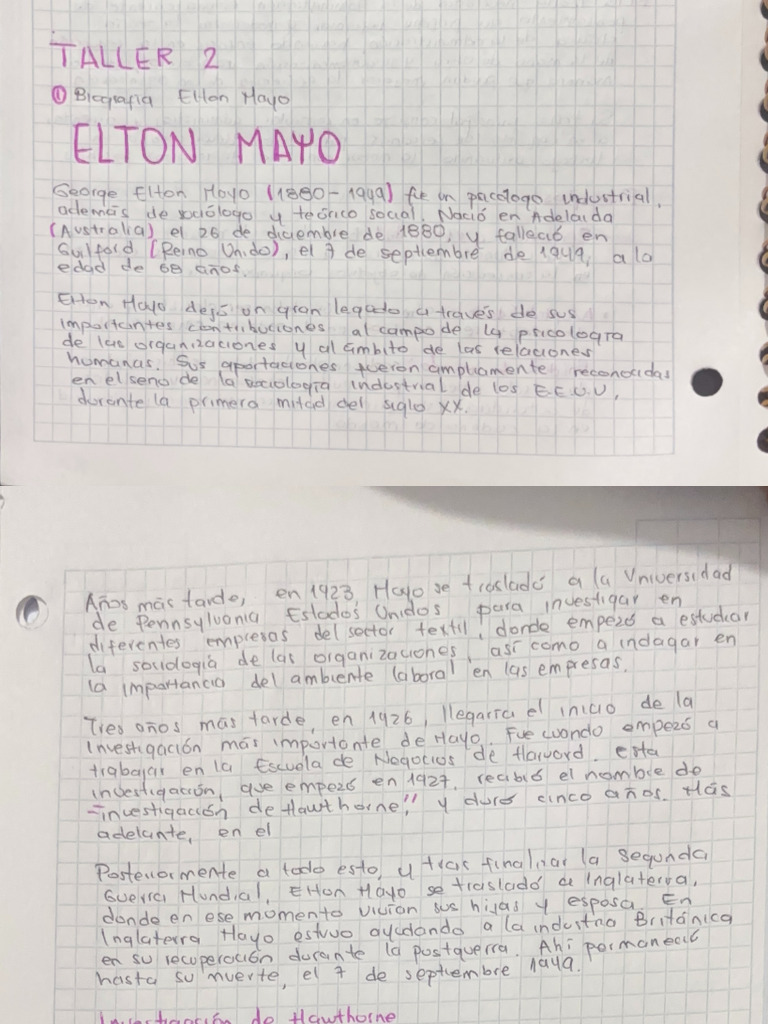 TALLER 2
① Biografia Elton Mayo
ELTON MAYO
George Elton Mayo (1880-1949) fue un psicologo industrial,
además de sociólogo y teórico social. Nació en Adelaida
(Australia) el 26 de diciembre de 1880, y falleció en
Guilford (Reino Unido), el 7 de septiembre de 1949, a la
edad de 68 años.
Elton Mayo dejó un gran legado a través de sus
importantes contribuciones al campo de la psicología
de las organizaciones y al ámbito de las relaciones
humanas. Sus aportaciones fueron ampliamente reconocidas
en el seno de la sociología industrial de los E.E.U.U,
durante la primera mitad del siglo XX.
Años más tarde, en 1923, Mayo se trasladó a la Universidad
de Pennsylvania Estados Unidos, para investigar en
diferentes empresas del sector textil, donde empezó a estudiar
la sociología de las organizaciones, así como a indagar en
la importancia del ambiente laboral en las empresas.
Tres años más tarde, en 1926, llegaría el inicio de la
investigación más importante de Mayo. Fue cuando empezó a
trabajar en la Escuela de Negocios de Harvard. esta
investigación, que empezó en 1927, recibió el nombre de
"investigación de Hawthorne", y duró cinco años. Más
adelante, en el
Posteriormente a todo esto, y tras finalizar la segunda
Guerra Mundial, Elton Mayo se trasladó a Inglaterra,
donde en ese momento vivían sus hijas y esposa. En
Inglaterra Mayo estuvo ayudando a la industria Británica
en su recuperación durante la postguerra. Ahí permaneció
hasta su muerte, el 7 de septiembre 1949.
Investigación de Hawthorne